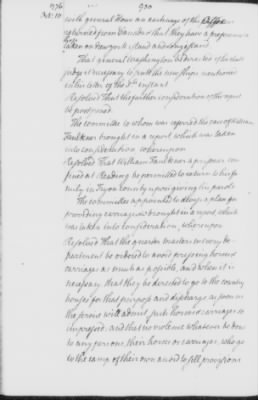 1776 900
Feb. 10
with general Howe on exchange of the
returned from Dunmore that they have a prisoner
taken on New york Island and Long island
That general Washington be directed if he shall
judge it necessary to permit the
in his letter of the 3d instant
Resolved That the farther consideration of the report
be postponed.
The committee to whom was referred the case of William
Faulknor brought in a report which was taken
into consideration whereupon
Resolved That William Faulknor a prisoner con
fined at Reading be permitted to return to his fa
mily in Tryon county upon giving his parole
The committee appointed to devise a plan for
providing carriages brought in a report which
was taken into consideration, whereupon
Resolved That the quarter masters in every de-
partment be ordered to avoid pressing horses or
carriages as much as possible, and when it is
necessary that they be directed to go to the country
houses for that purpose and discharge as soon as
the service will admit such horses & carriages so
impressed: and that no violence whatever be done
to any persons, their horses or carriages who go
to the camp of their own accord to sell provisions